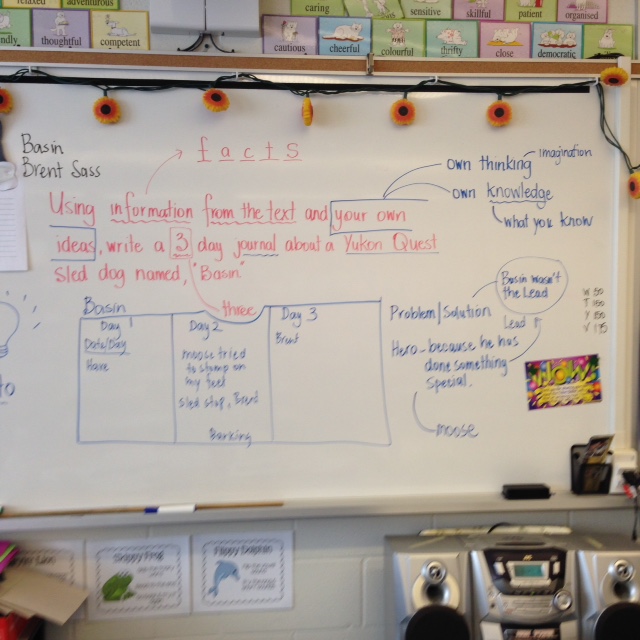 relaxed
adventurous
caring
sensitive
skillful
patient
organised
thoughtful
competent
cautious
cheerful
colourful
thrifty
close
democratic
Basin
Brent Sass
facts
own thinking
imagination
own knowledge
what you know
Using information from the text and your own
ideas, write a 3 day journal about a Yukon Quest
sled dog named, "Basin"
three
Basin
Day 1
Date/Day
Have
Day 2
moose tried
to stomp on
my feet
sled stop, Brent
Barking
Day 3
Brent
Problem/Solution
Basin wasn't
the Lead
Lead
Hero - because he has
done something
special.
moose
Skippy Frog
Flippy Dolphin